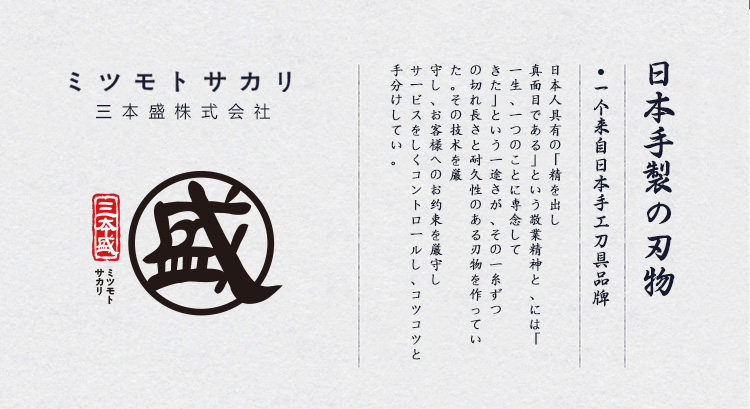 日本手製の刃物
・一个来自日本手工刀具品牌
日本人具有の「精を出し
真面目である」という敬業精神と、には「
一生、一つのことに専念して
きた」という一途さが、その一糸ずつ
の切れ長さと耐久性のある刃物を作ってい
た。その技术を厳
守し、お客様へのお約束を厳守し
サービスをしくコントロールし、コツコツと
手分けしてい。
ミツモトサカリ
三本盛株式会社
盛
三本盛
ミツモト
サカリ